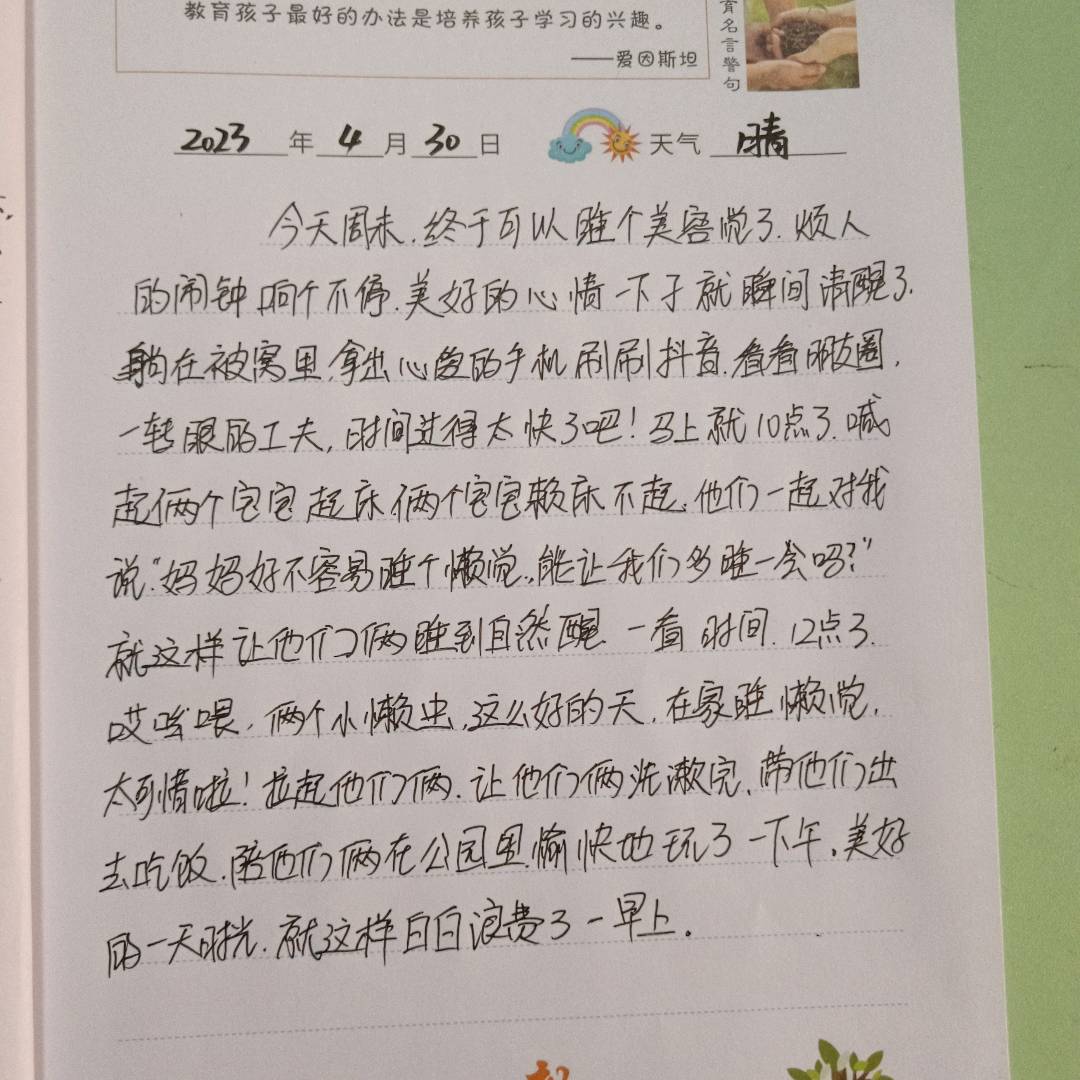 教育孩子最好的办法是培养孩子学习的兴趣。
——爱因斯坦
育名言警句
2023年4月30日 天气 晴
今天周末,终于可以睡个美容觉了.烦人
的闹钟响个不停.美好的心情一下子就瞬间清醒了.
躺在被窝里,拿出心爱的手机刷刷抖音.看看朋友圈,
一转眼的工夫,时间过得太快了吧!马上就10点了.喊
起俩个宝宝起床俩个宝宝赖床不起.他们一起对我
说."妈妈好不容易睡个懒觉.,能让我们多睡一会吗?"
就这样让他们俩睡到自然醒 一看时间.12点了.
哎哟喂,俩个小懒虫,这么好的天,在家睡懒觉,
太可惜啦!拉起他们俩.让他们俩洗漱完,带他们出
去吃饭.陪他们俩在公园里愉快地玩了一下午.美好
的一天时光.就这样白白浪费了一早上.